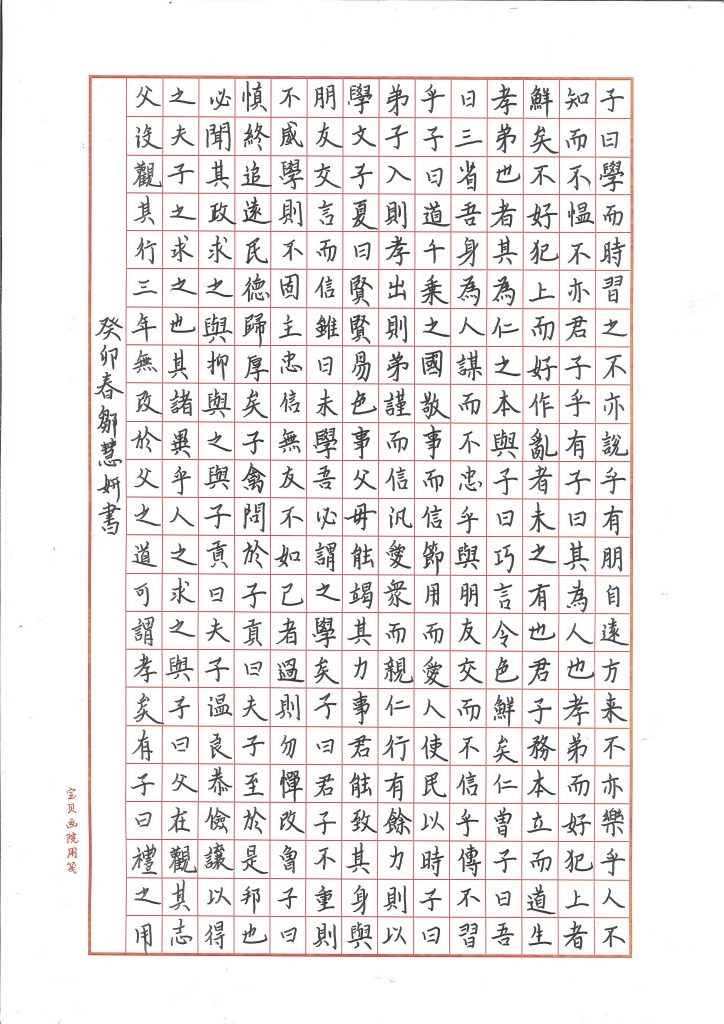 子曰學而時習之不亦說乎有朋自遠方来不亦樂乎人不
知而不愠不亦君子乎有子曰其為人也孝弟而好犯上者
鮮矣不好犯上而好作亂者未之有也君子務本立而道生
孝弟也者其為仁之本與子曰巧言令色鮮矣仁曾子曰吾
日三省吾身為人謀而不忠乎與朋友交而不信乎傳不習
乎子曰道千乘之國敬事而信節用而愛人使民以時子曰
弟子入則孝出則弟謹而信汎愛衆而親仁行有餘力則以
學文子夏曰賢賢易色事父毋能竭其力事君能致其身與
朋友交言而信雖曰未學吾必謂之學矣子曰君子不重則
不威學則不固主忠信無友不如己者過則勿憚改魯子曰
慎終追遠民德歸厚矣子禽問於子貢曰夫子至於是邦也
必聞其政求之與抑與之與子貢曰夫子温良恭儉讓以得
之夫子之求之也其諸異乎人之求之與子曰父在觀其志
父沒觀其行三年無改於父之道可謂孝矣有子曰禮之用
癸卯春鄒慧妍書
宝贝画院用笺